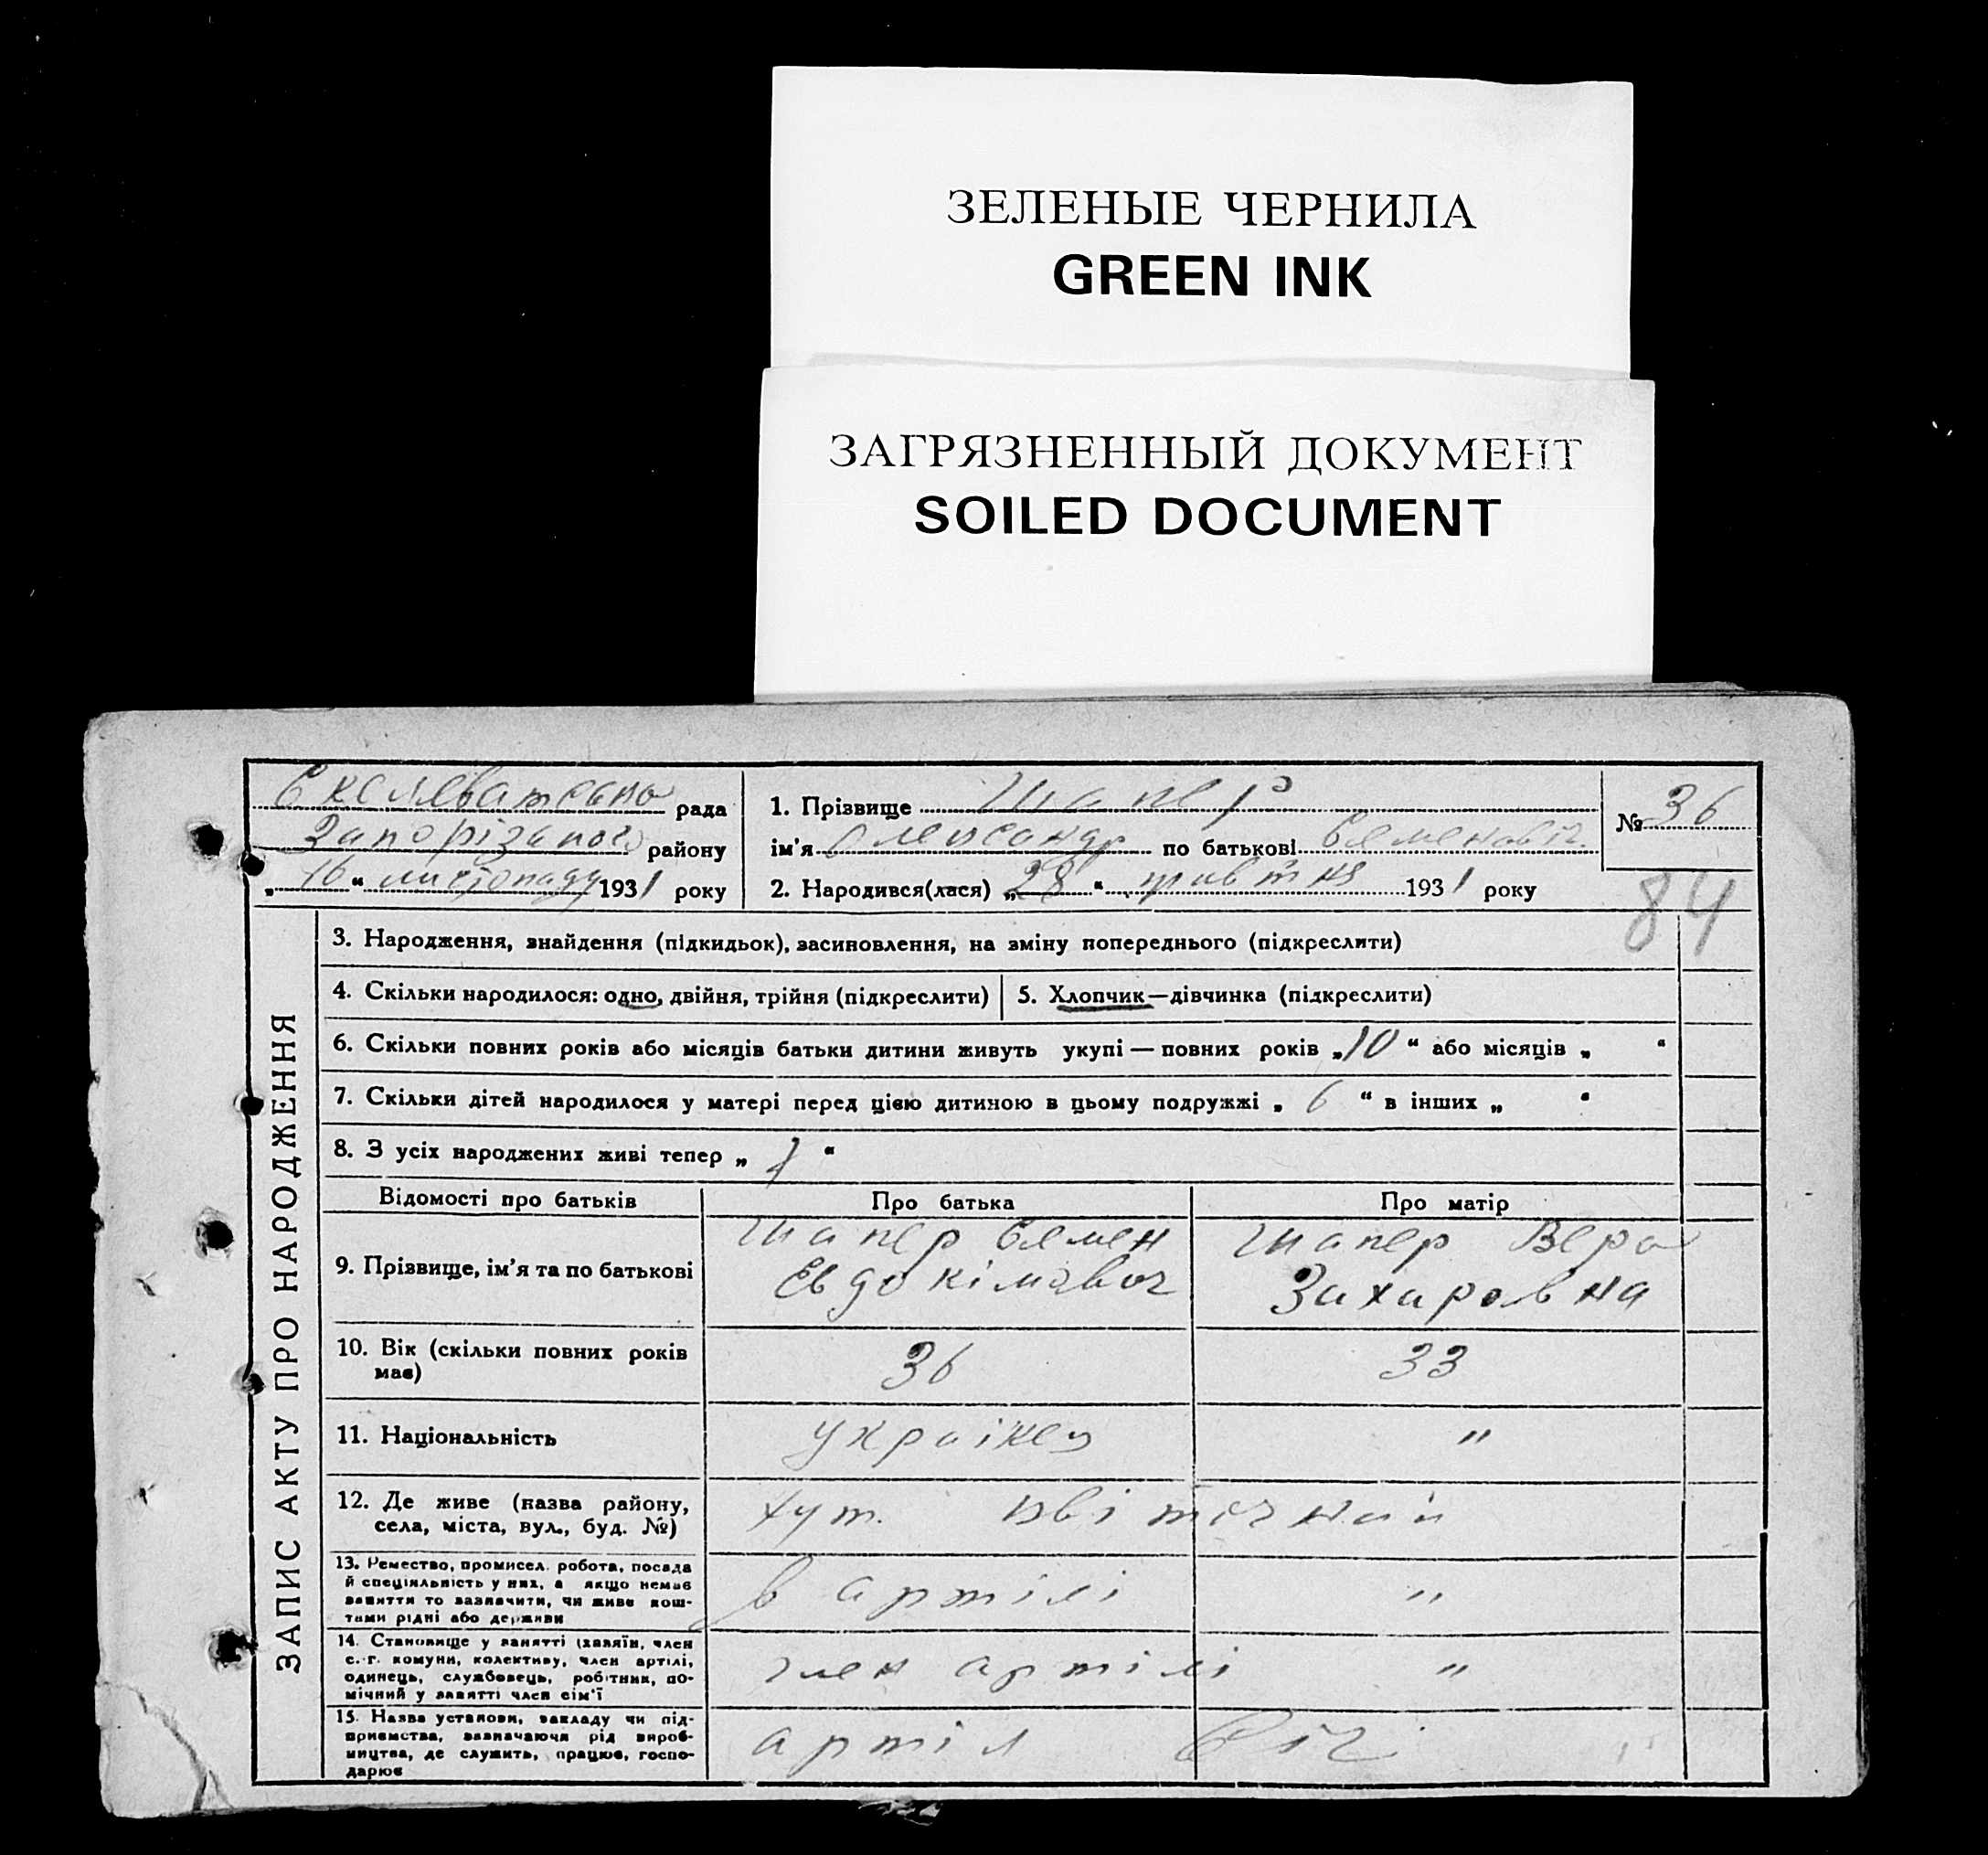 ЗЕЛЕНЫЕ ЧЕРНИЛА
GREEN INK
ЗАГРЯЗНЕННЫЙ ДОКУМЕНТ
SOILED DOCUMENT
рада
району
„16“ листопаду 1931 року
1. Прізвище Шапер
ім'я Олександр по батькові Семенович
2. Народився(лася) „28“ жовтня 1931 року
№ 36
84
ЗАПИС АКТУ ПРО НАРОДЖЕННЯ
3. Народження, знайдення (підкидьок), засиновлення, на зміну попереднього (підкреслити)
4. Скільки народилося: одно, двійня, трійня (підкреслити)
5. Хлопчик—дівчинка (підкреслити)
6. Скільки повних років або місяців батьки дитини живуть укупі — повних років „10“ або місяців „ “
7. Скільки дітей народилося у матері перед цією дитиною в цьому подружжі „6“ в інших „ “
8. З усіх народжених живі тепер „7“
Відомості про батьків
Про батька
Про матір
9. Прізвище, ім'я та по батькові
Шапер Семен
Евдокімович
Шапер Вера
Захаровна
10. Вік (скільки повних років
має)
36
33
11. Національність
українец
"
12. Де живе (назва району,
села, міста, вул., буд. №)
хут. Квітучний
13. Ремество, промисел, робота, посада
й спеціяльність у них, а якщо немає
заняття то зазначити, чи живе кош-
тами рідні або держави
в артілі
"
14. Становище у занятті (хазяїн, член
с.-г. комуни, колективу, член артілі,
одинець, службовець, робітник, по-
мічний у занятті член сім'ї
член артілі
"
15. Назва установи, закладу чи під-
приємства, зазначаючи рід вироб-
ництва, де служить, працює, госпо-
дарює
артіл Січ
"